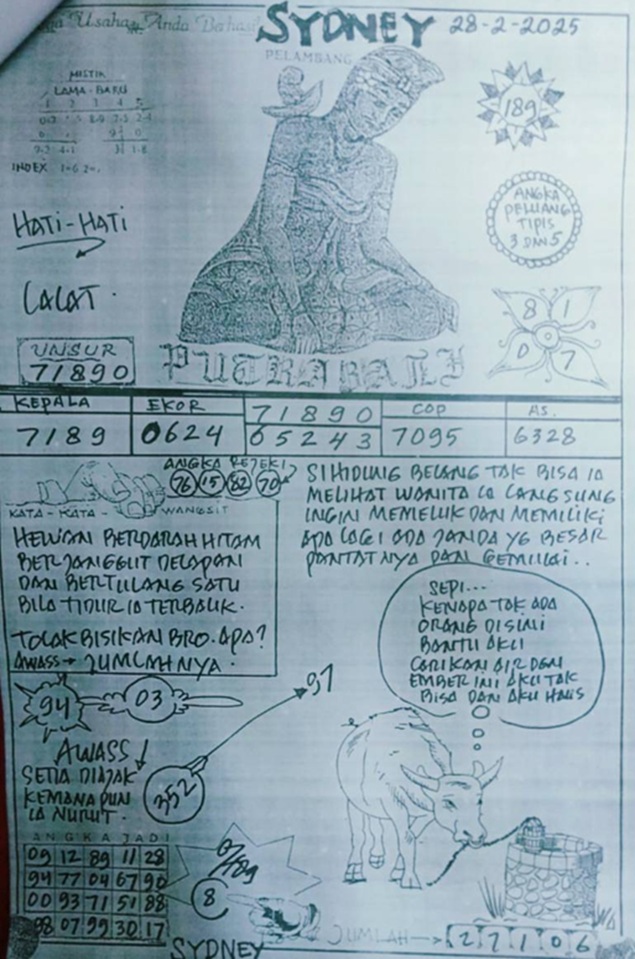 Usaha Anda Berhasil
SYDNEY 28-2-2025
PELAMBANG
MISTIK
LAMA - BARU
1 2 3 4 5
INDEX
189
ANGKA
PELUANG
TIPIS
3 DAN 5
HATI-HATI
LALAT.
8 1
0 7
UNSUR
71890
PUTRABALI
KEPALA EKOR 71890 COP AS.
7189 0624 65243 7095 6328
ANGKA REJEKI
76 15 82 70
KATA - KATA - WANGSIT
HEWAN BERDARAH HITAM
BERJANGGUT DELAPAN
DAN BERTULANG SATU
BILA TIDUR IA TERBALIK.
TOLAK BISIKAN BRO. APA?
AWASS → JUMLAHNYA.
SI HIDUNG BELANG TAK BISA IA
MELIHAT WANITA IA LANGSUNG
INGIN MEMELUK DAN MEMILIKI
APA LAGI ADA JANDA YG BESAR
PANTATNYA DAN GEMULAI..
SEPI...
KENAPA TAK ADA
ORANG DISINI
BANTU AKU
CARIKAN AIR DGN
EMBER INI AKU TAK
BISA DAN AKU HAUS
94
03
97
AWASS!
SETIA DIAJAK
KEMANA PUN
IA NURUT.
352
ANGKA JADI
09 12 89 11 28
94 77 04 67 90
00 93 71 51 88
98 07 99 30 17
07/89
8
JUMLAH → 27106
SYDNEY